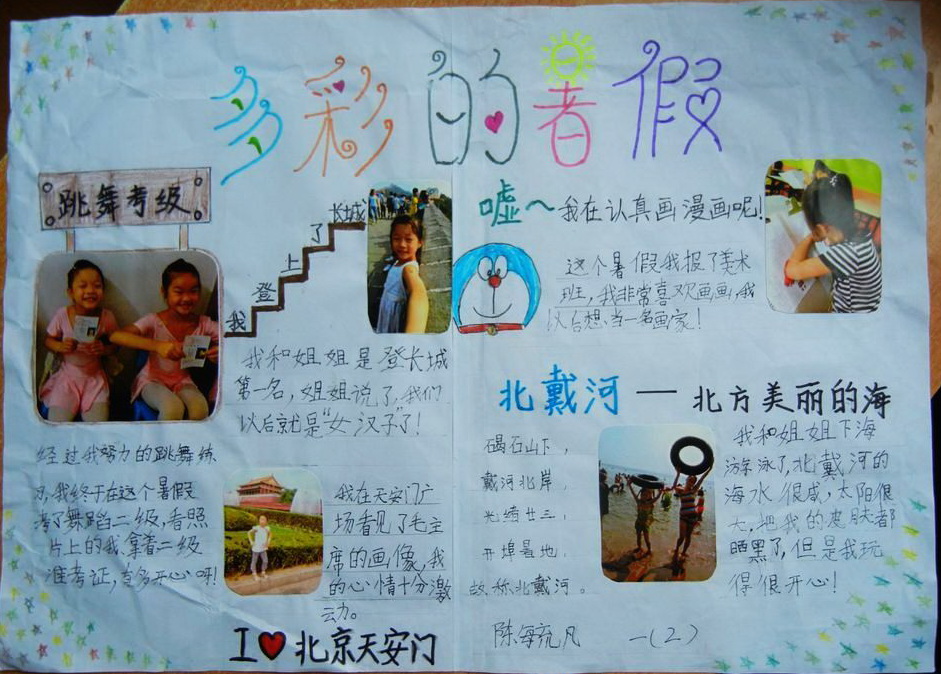 多彩的暑假
跳舞考级
经过我努力的跳舞练
习,我终于在这个暑假
考了舞蹈二级,看照
片上的我,拿着二级
准考证,有多开心呀!
我登上了长城
我和姐姐是登长城
第一名,姐姐说了,我们
以后就是“女汉子”了!
我在天安门广
场看见了毛主
席的画像,我
的心情十分激
动。
I 北京天安门
嘘~我在认真画漫画呢!
这个暑假我报了美术
班,我非常喜欢画画,我
以后想当一名画家!
北戴河 — 北方美丽的海
碣石山下,
戴河北岸,
光绪廿三,
开埠暑地,
故称北戴河。
我和姐姐下海
游泳了,北戴河的
海水很咸,太阳很
大,把我的皮肤都
晒黑了,但是我玩
得很开心!
一(2)